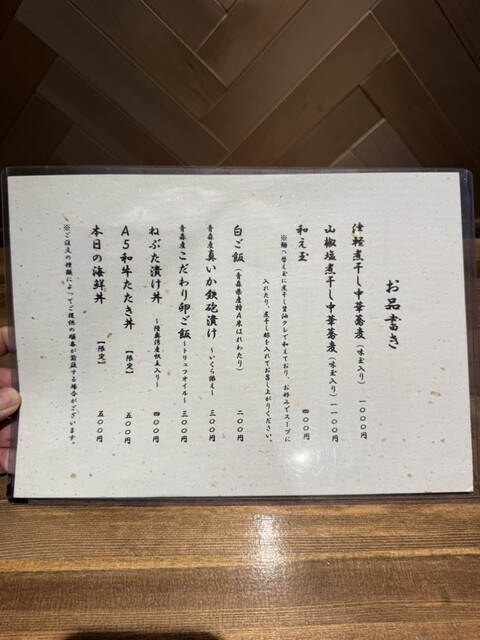 お品書き
津軽煮干し中華蕎麦（味玉入り）　一〇〇〇円
山椒塩煮干し中華蕎麦（味玉入り）一一〇〇円
和え玉　四〇〇円
※麺へ替え玉に煮干し醤油タレで和えており、お好みでスープに
入れたり、煮干し酢を入れてお召し上がりください。
白ご飯（青森県産特A米はれわたり）　二〇〇円
青森産真いか鉄砲漬け～いくら添え～　三〇〇円
青森産こだわり卵ご飯～トリュフオイル～　三〇〇円
ねぶた漬け丼　～陸奥湾産帆立入り～　四〇〇円
A5和牛たたき丼　【限定】　五〇〇円
本日の海鮮丼　【限定】　五〇〇円
※ご注文の種類によってご提供の順番が前後する場合がございます。